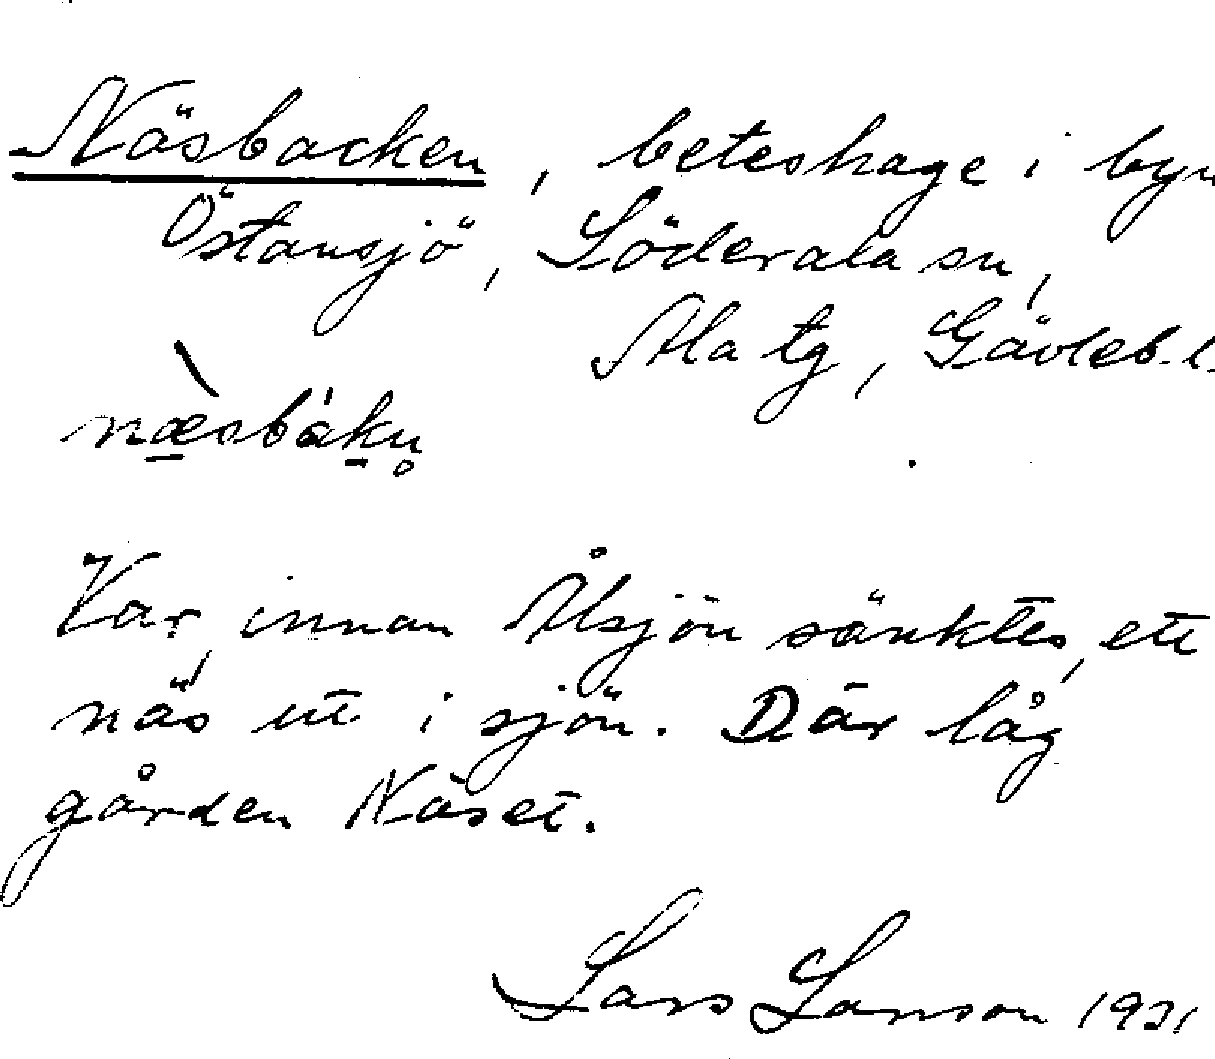 Näsbacken, beteshage i byn
Östansjö, Söderala sn,
Ala tg, Gävleb. l.
næsbákn̥
Var, innan Ålsjön sänktes, ett
näs ut i sjön. Där låg
gården Näset.
Lars Larson 1921